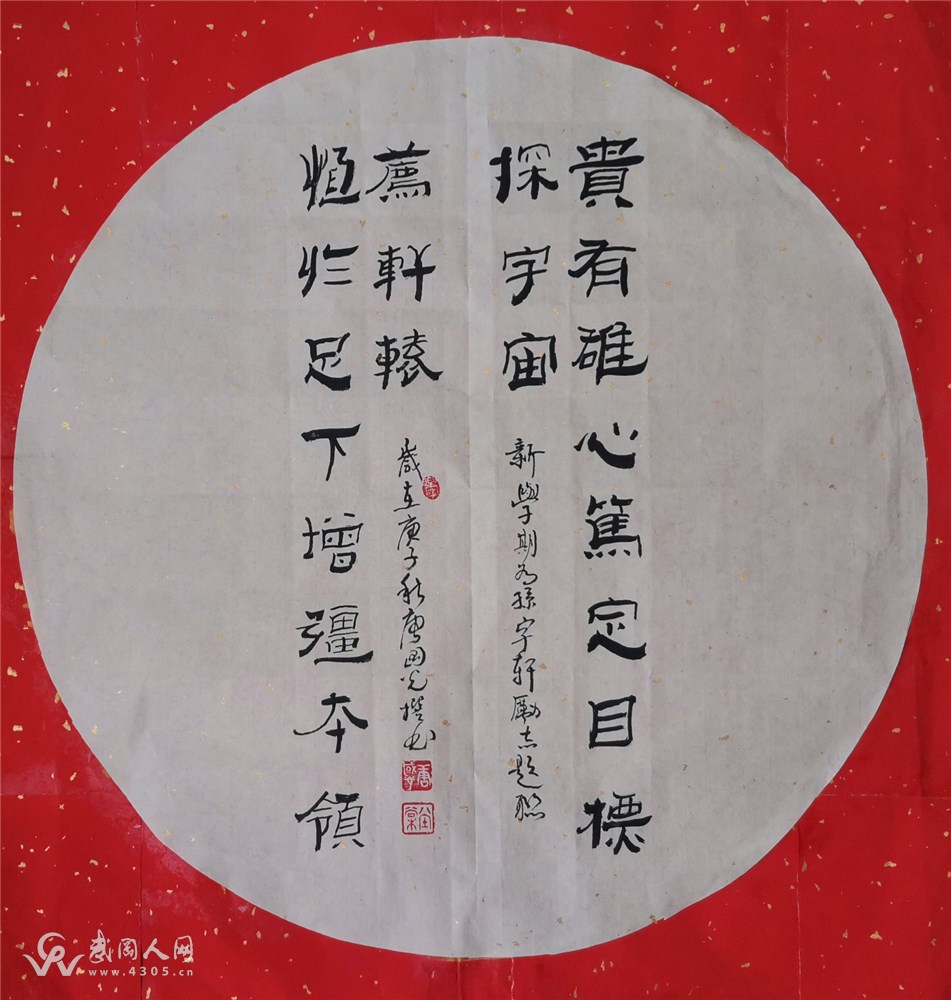 貴有雄心篤定目標
探宇宙
新學期为孫宇軒勵志題聯
恒於足下增彊本領
薦軒轅
歲在庚子秋唐國光撰书
武岡人网
www.4305.cn